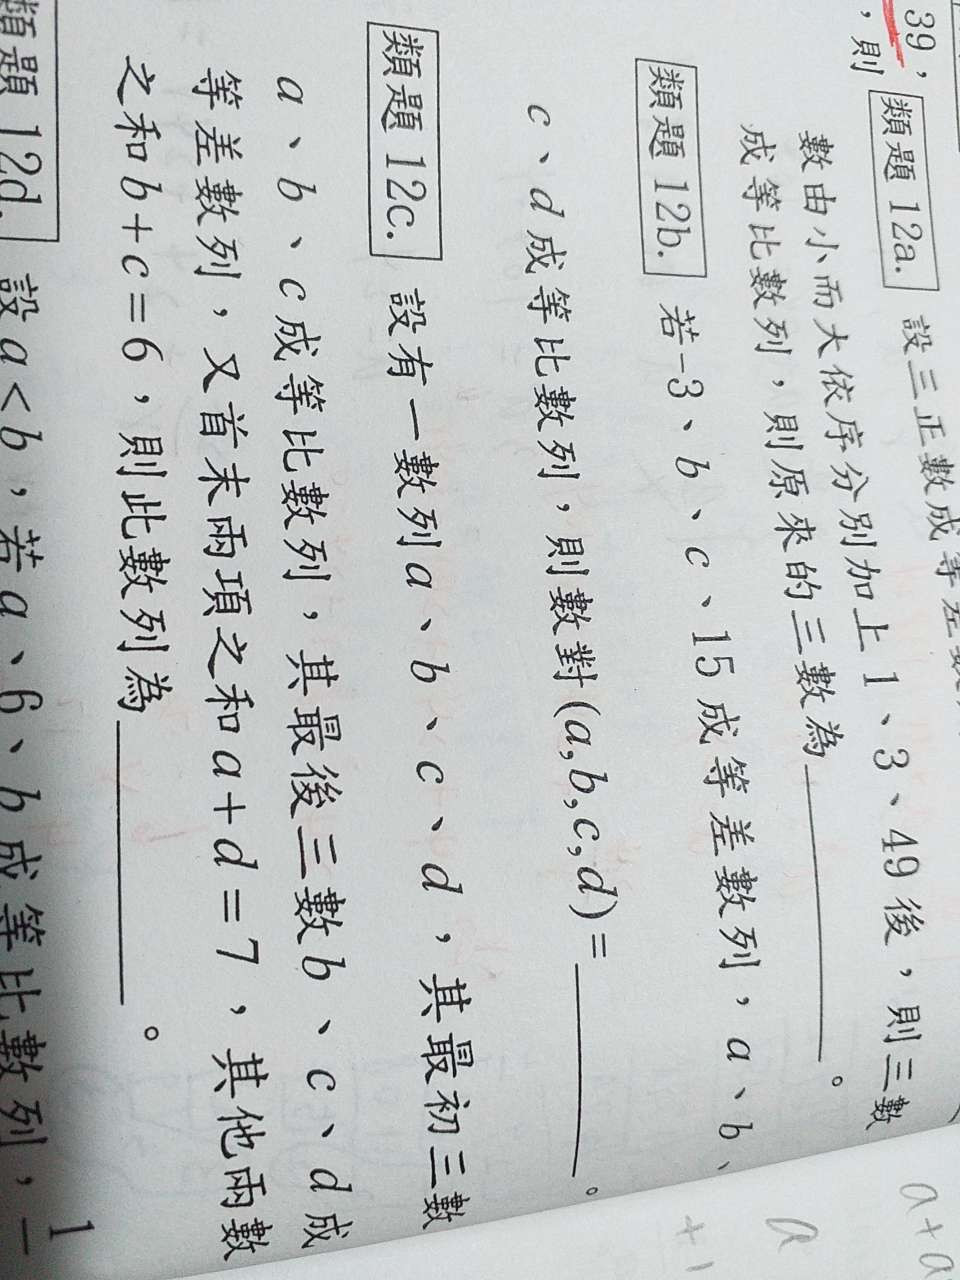 39，
，則
類題 12a. 設三正數成等差數
數由小而大依序分別加上 1、3、49後，則三數
成等比數列，則原來的三數為______。
類題 12b. 若-3、b、c、15成等差數列，a、b、
c、d成等比數列，則數對(a,b,c,d)=______。
類題 12c. 設有一數列a、b、c、d，其最初三數
a、b、c成等比數列，其最後三數b、c、d成
等差數列，又首末兩項之和a+d=7，其他兩數
之和b+c=6，則此數列為______。
類題 12d. 設a<b，若a、6、b成等比數列，
1
a+a
a
+1